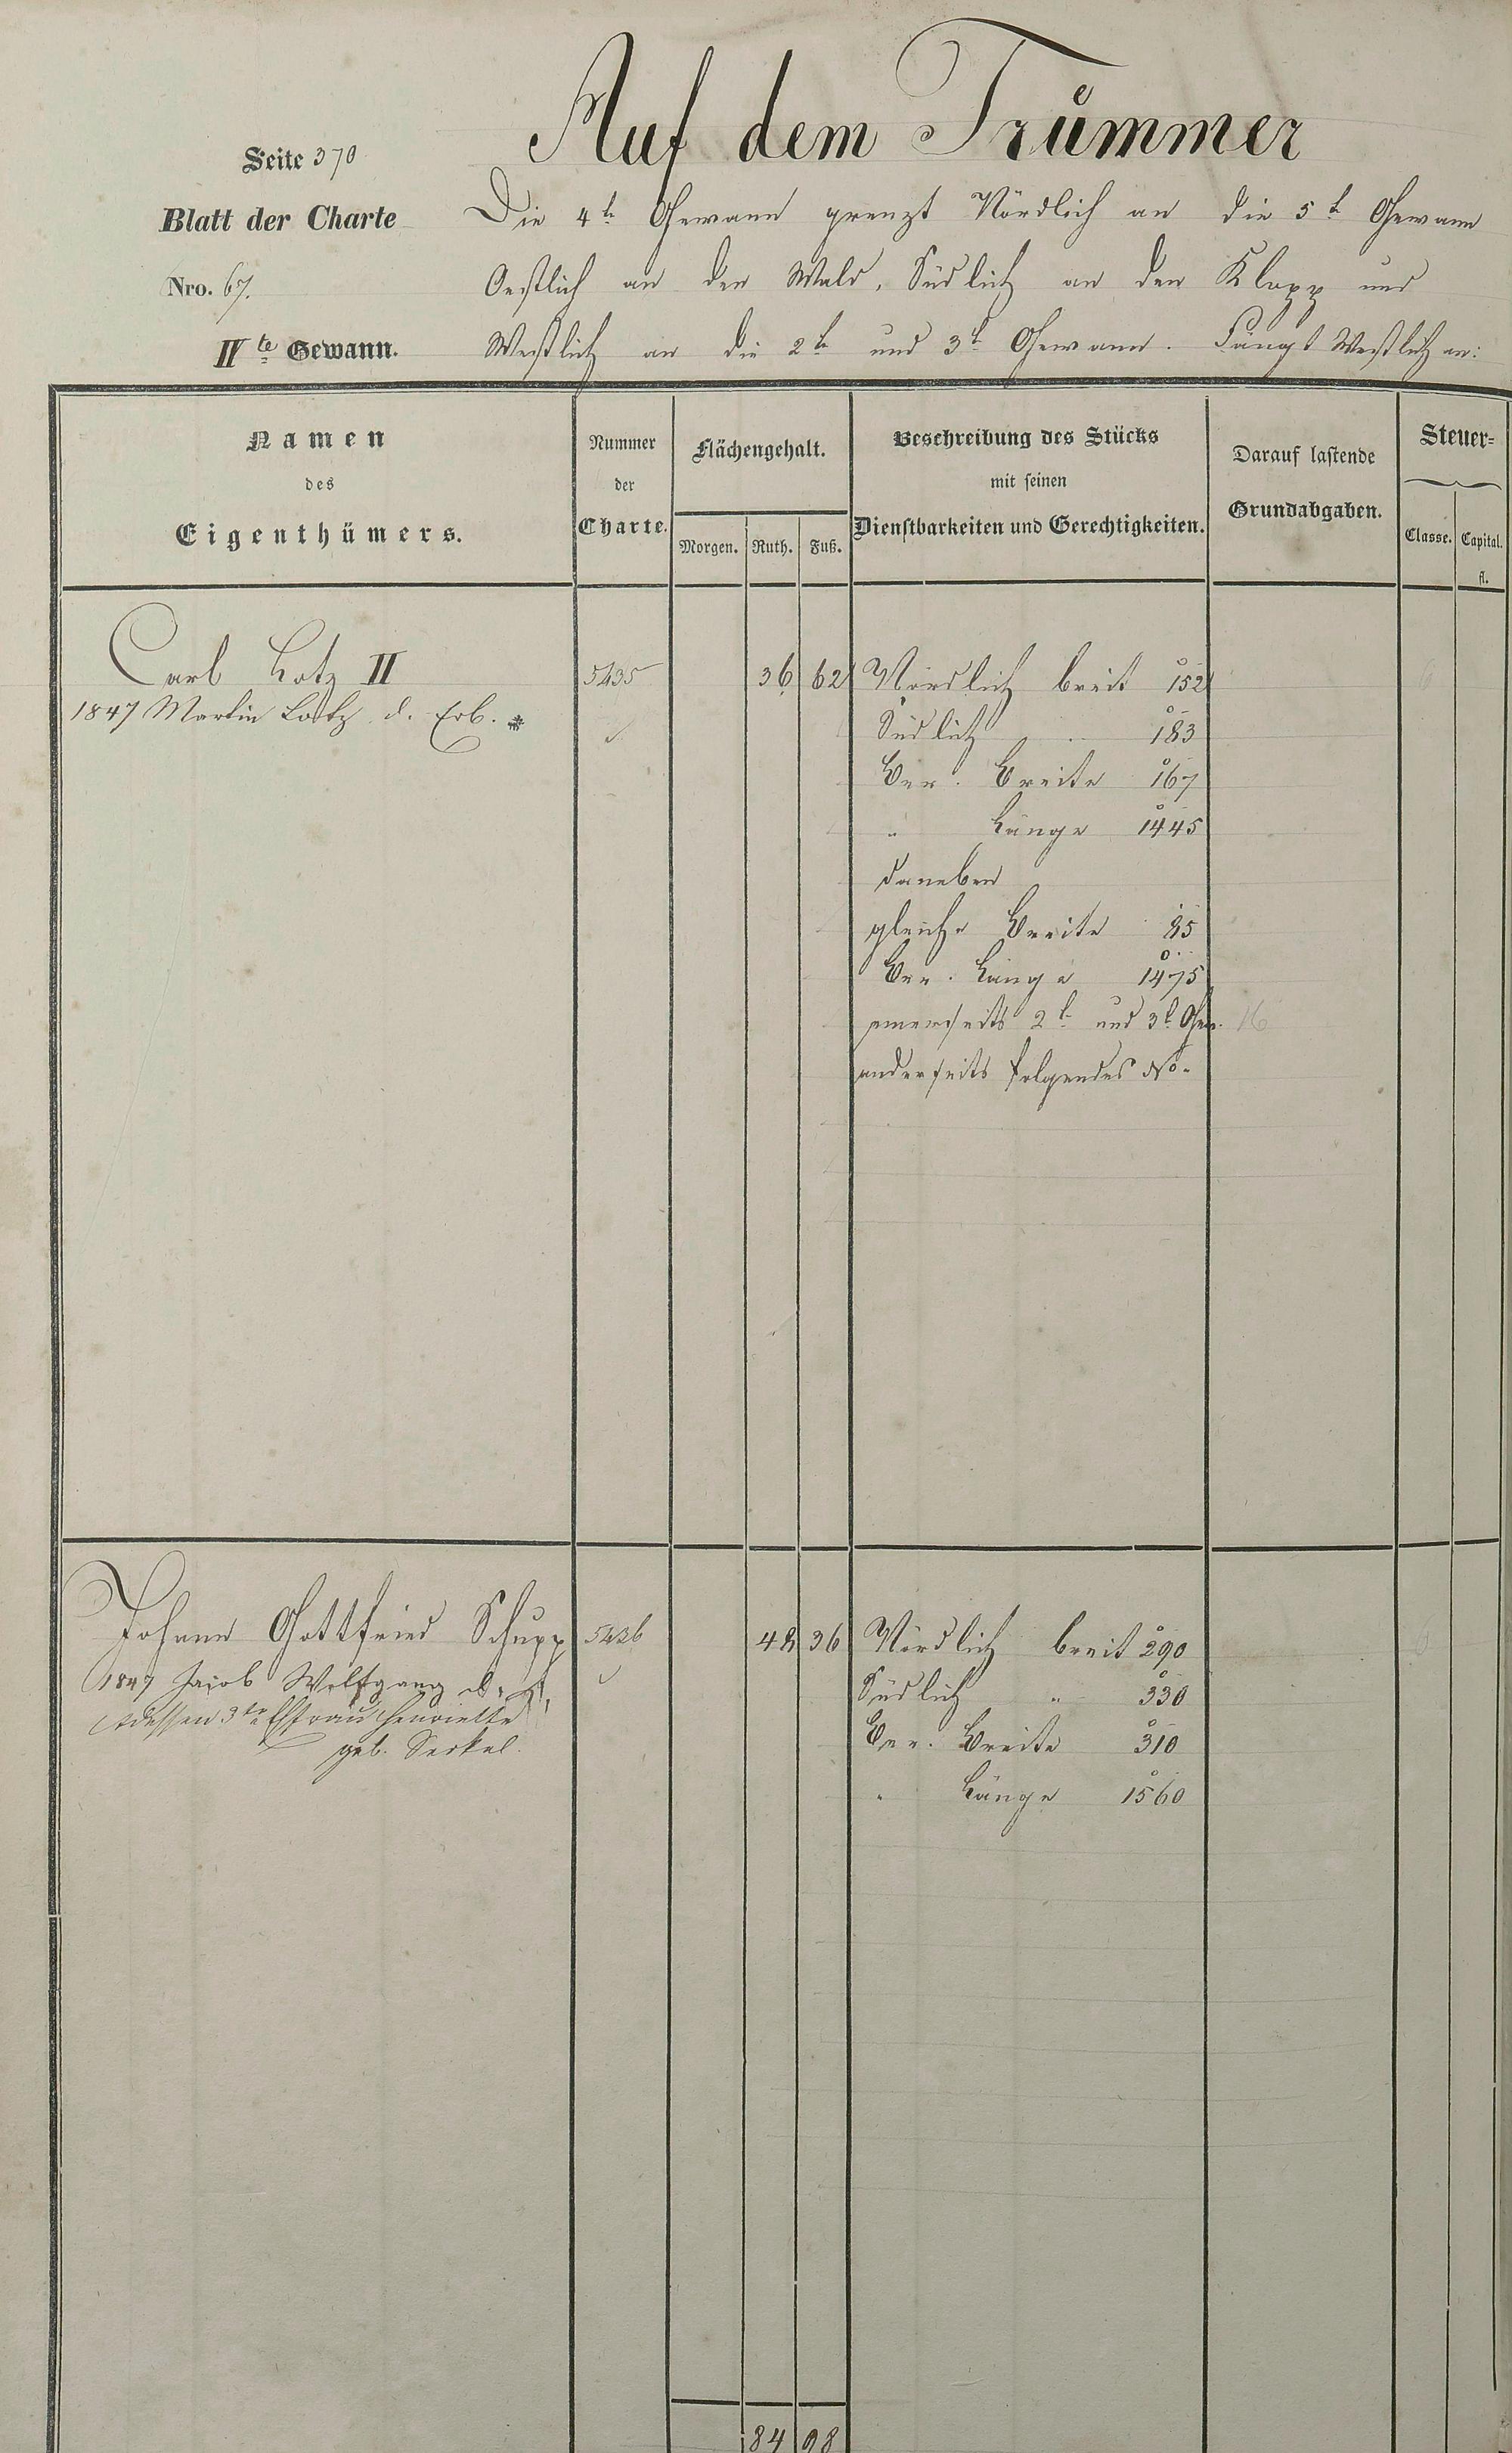 Auf dem Trümmer
Seite 370
Blatt der Charte
Nro. 67.
IV te Gewann.
Die 4te Gewann grenzt Nördlich an die 5te Gewann
Oestlich an den Wald, Südlich an den Klopp und
Westlich an die 2te und 3te Gewann. Fängt Westlich an:
Namen
des
Eigenthümers.
Nummer
der
Charte.
Flächengehalt.
Morgen. Ruth. Fuß.
Beschreibung des Stücks
mit seinen
Dienstbarkeiten und Gerechtigkeiten.
Darauf lastende
Grundabgaben.
Steuer=
Classe. Capital.
fl.
Carl Lotz II 5435 36 62 Nördlich breit 152
1847 Martin Lotz d. Erb.
Südlich " 183
Ber. Breite 167
" Länge 1445
daneben
gleiche Breite 85
Ber. Länge 1475
einerseits 2te und 3te Gew. 16
anderseits folgendes No.
Johann Gottfried Schupp 5436 48 36 Nördlich breit 290
1847 Jacob Wolfgang
dessen 3te Ehfrau Henriette
geb. Serkel.
Südlich " 330
Ber. Breite 310
" Länge 1560
84 98